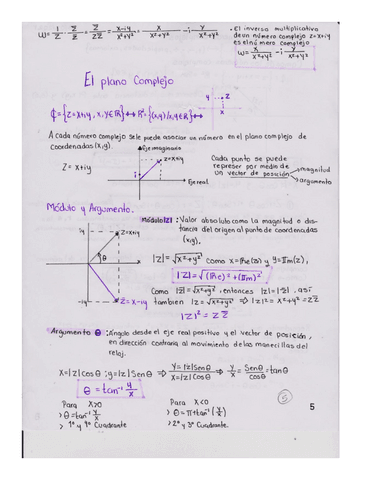 W = 1/Z · Z̄/Z̄ = Z̄/ZZ̄ = x-iy/x²+y² = x/x²+y² - i y/x²+y²
· El inverso multiplicativo
de un número complejo z=x+iy
es el número complejo
W = x/x²+y² - i y/x²+y²
El plano Complejo
ℂ={z=x+iy, x,y∈ℝ} ↔ ℝ²{(x,y)/x,y∈ℝ}
y
z
x
A cada número complejo se le puede asociar un número en el plano complejo de
coordenadas (x,y).
Eje imaginario
Z= x+iy
z=x+iy
i
Eje real
Cada punto se puede
represer por medio de
un vector de posición
magnitud
argumento
Módulo y Argumento.
Módulo |Z|: Valor absoluto como la magnitud o dis-
tancia del origen al punto de coordenadas
(x,y).
iy
z=x+iy
θ
-iy
Z̄ = x-iy
|Z|=√x²+y² como x=Re(z) y y=Im(z),
|Z|=√(Re)²+(Im)²
Como |Z|=√x²+y², entonces |Z|=|Z̄|, así
tambien |Z|=√x²+y² ⇒ |Z|²= x²+y²=ZZ̄
|Z|²= ZZ̄
Argumento θ: Ángulo desde el eje real positivo y el vector de posición,
en dirección contraria al movimiento de las manecillas del
reloj.
X=|Z|Cosθ ; y=|Z|Senθ ⇒ Y=|Z|Senθ/X=|Z|Cosθ ⇒ Y/X = Senθ/cosθ = tanθ
θ = tan⁻¹ y/x
Para X>0
> θ = tan⁻¹ y/x
> 1º y 4º Cuadrante
Para X<0
> θ = π+tan⁻¹(y/x)
> 2º y 3º Cuadrante.
5
5